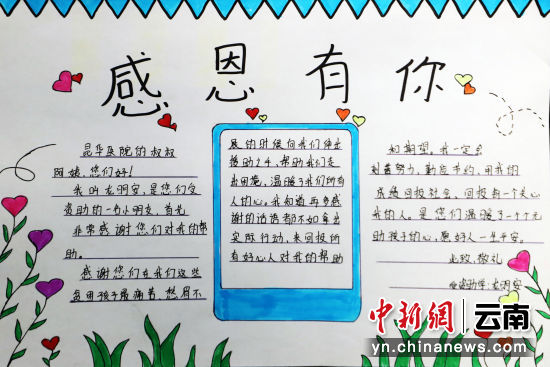 感恩有你
昆华医院的叔叔
阿姨，您们好！
我叫龙明安，是您们受
资助的一名小朋友，首先
非常感谢您们对我的帮
助。
感谢您们在我们这些
贫困孩子最
展的时候向我们伸出
援助之手，帮助我们走
出困境，温暖了我们所有
人的心。我知道再多感
谢的话语都不如拿出
实际行动，来回报所
有好心人对我的帮助
和期望，我一定会
刻苦努力，勤俭节约，用我的
成绩回报社会，回报每一个关心
我的人。是您们温暖了一个个无
助孩子的心，愿好人一生平安。
此致，敬礼
中新网 云南
yn.chinanews.com